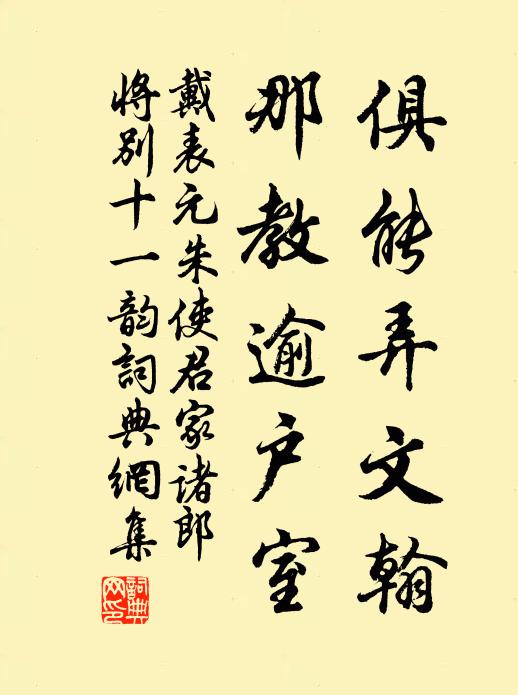 俱能弄文翰
那教逾户室
戴表元朱使君家诸郎
将别十一韵詞典網集
詞典網印